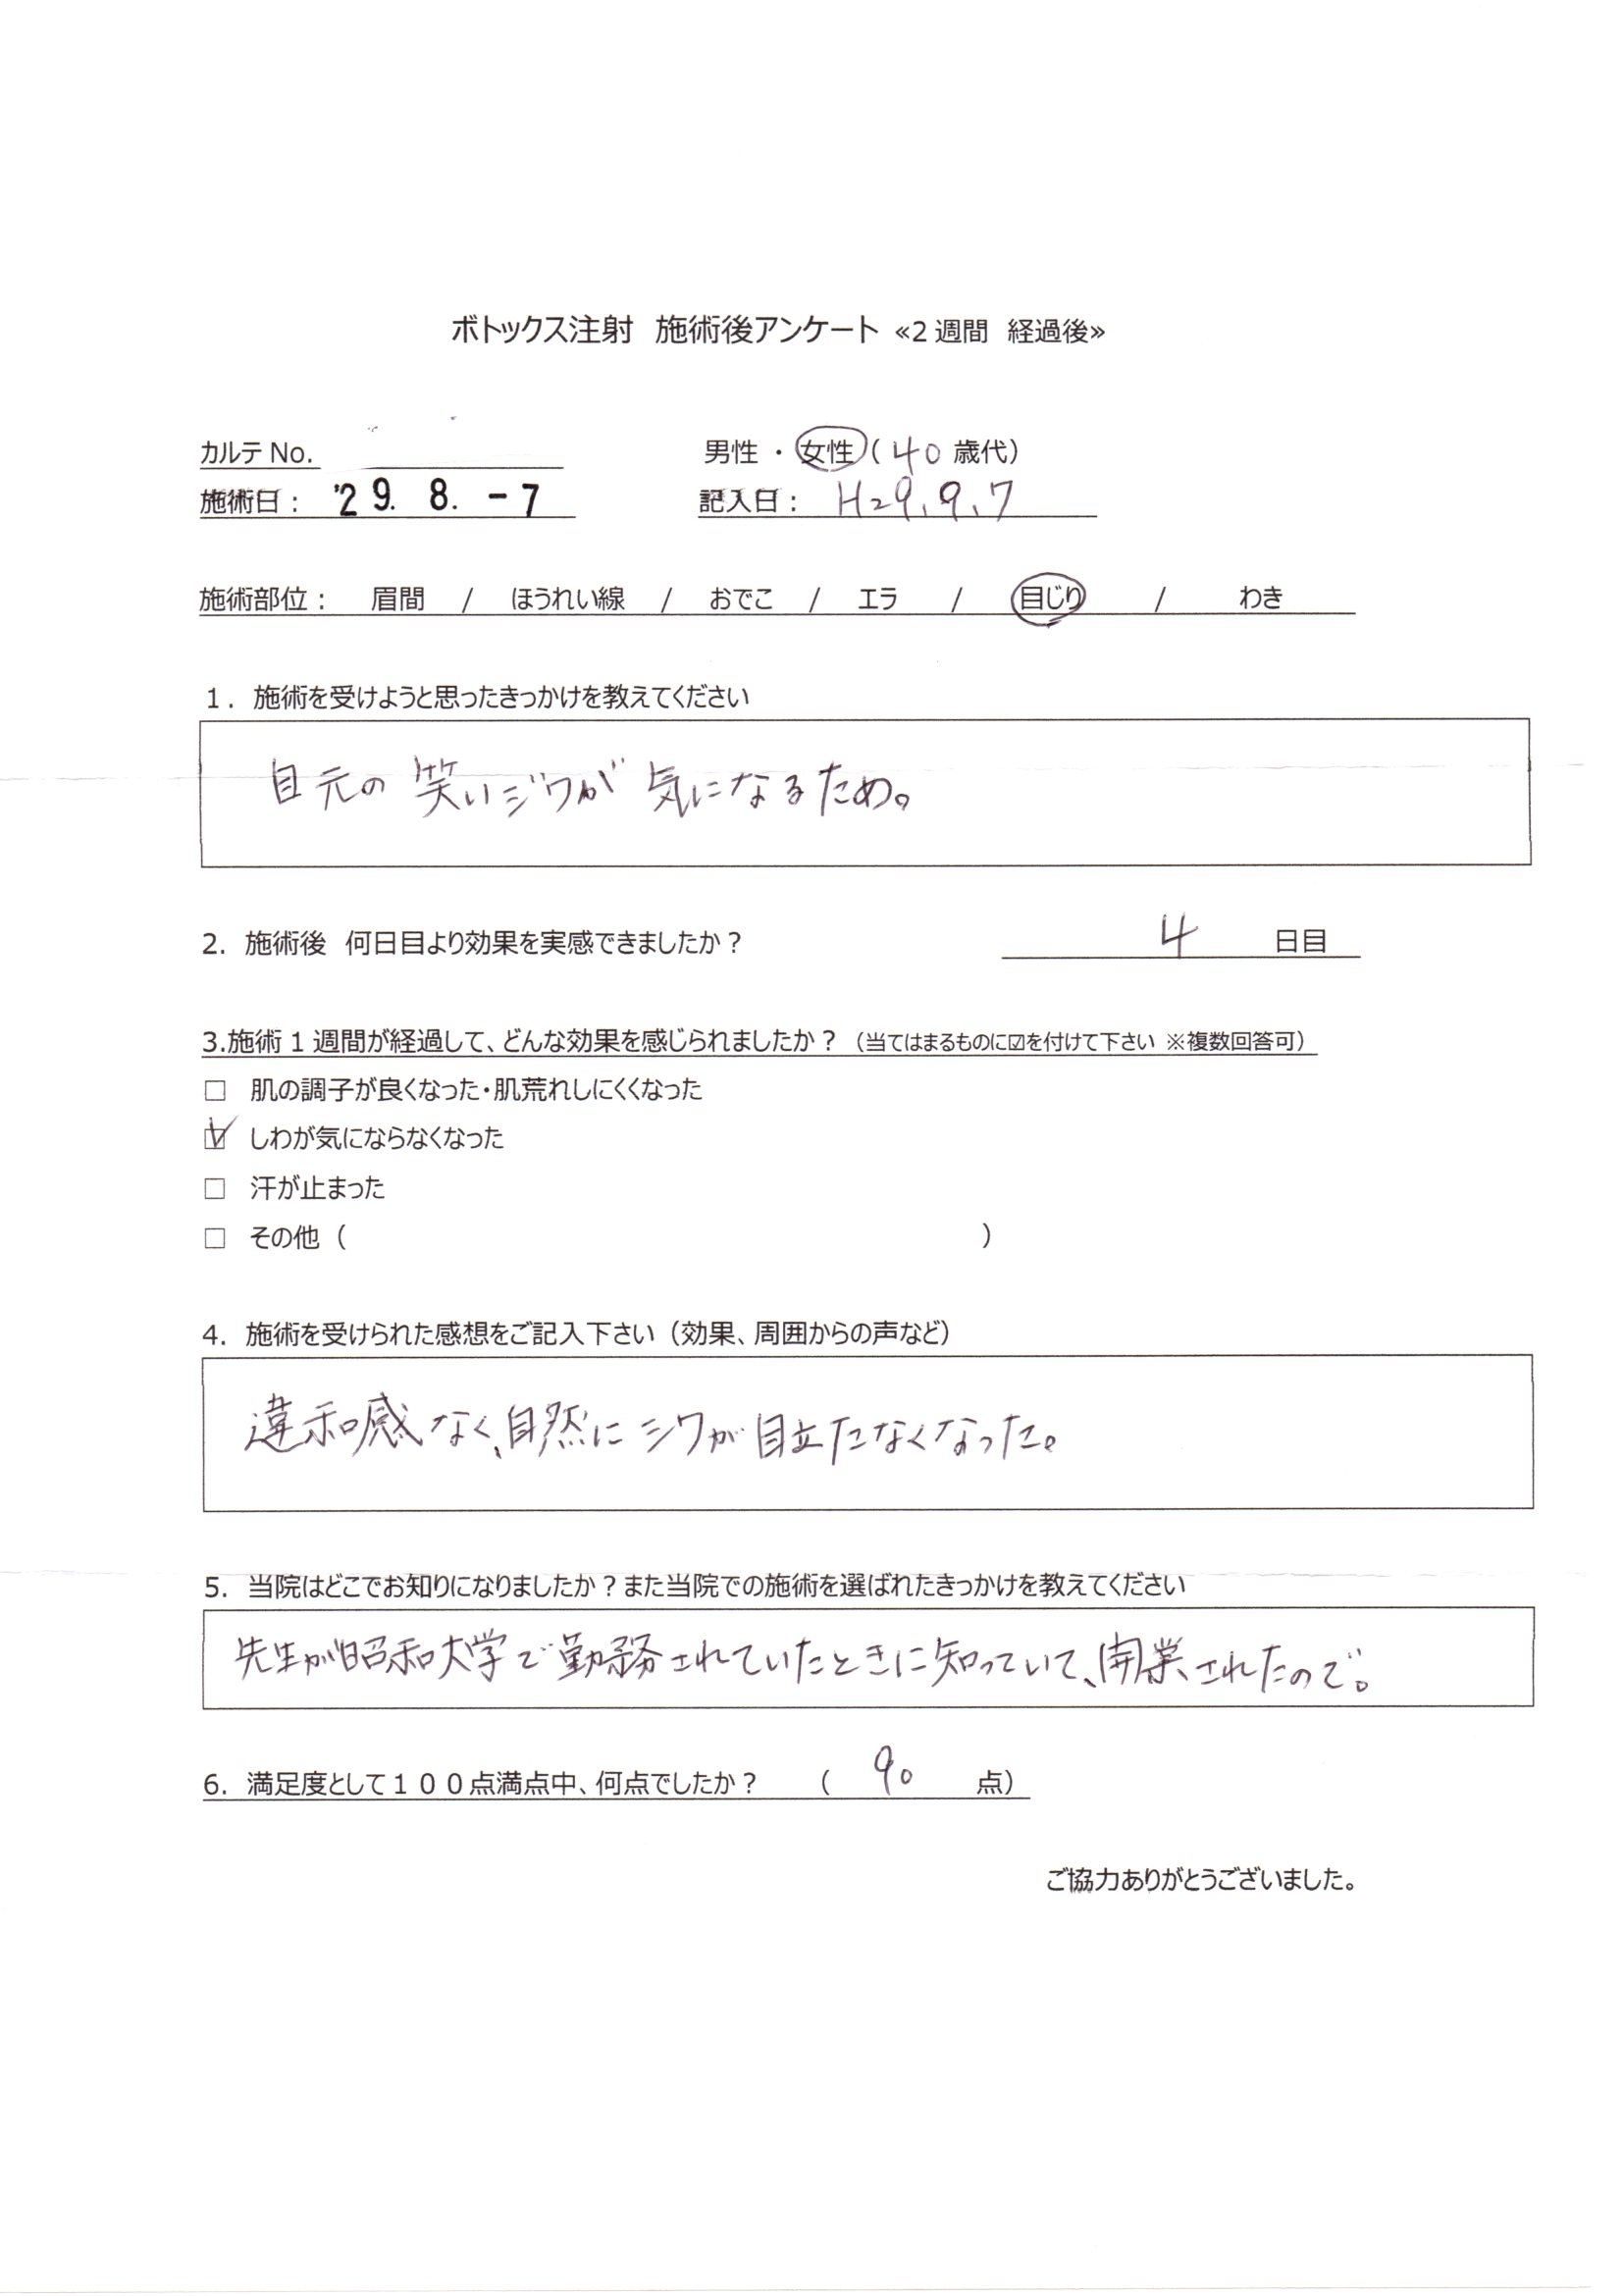 ボトックス注射 施術後アンケート ≪2週間 経過後≫
カルテNo. 男性・女性(40歳代)
施術日: '29. 8. -7 記入日: H29.9.7
施術部位: 眉間 / ほうれい線 / おでこ / エラ / 目じり / わき
1. 施術を受けようと思ったきっかけを教えてください
目元の笑いジワが気になるため。
2. 施術後 何日目より効果を実感できましたか? 4 日目
3.施術1週間が経過して、どんな効果を感じられましたか?(当てはまるものに☑を付けて下さい ※複数回答可)
□ 肌の調子が良くなった・肌荒れしにくくなった
☑ しわが気にならなくなった
□ 汗が止まった
□ その他( )
4. 施術を受けられた感想をご記入下さい(効果、周囲からの声など)
違和感なく、自然にシワが目立たなくなった。
5. 当院はどこでお知りになりましたか?また当院での施術を選ばれたきっかけを教えてください
先生が昭和大学で勤務されていたときに知っていて、開業されたので。
6. 満足度として100点満点中、何点でしたか? ( 90 点)
ご協力ありがとうございました。